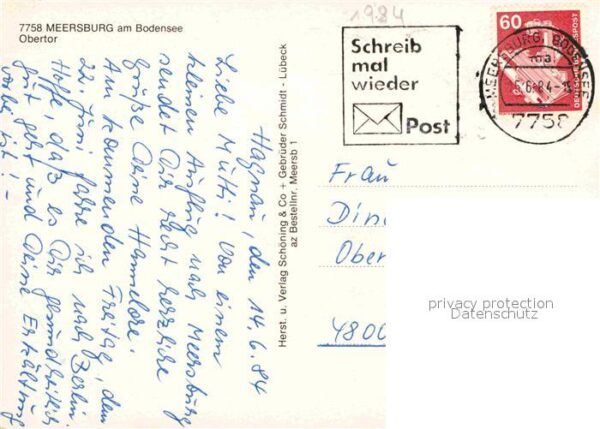 7758 MEERSBURG am Bodensee
Obertor
Hagnau, den 14.6.84
Liebe Mutti! Von einem
kleinen Ausflug nach Meersburg
sendet Dir recht herzliche
Grüße Deine Hannelore.
Am kommenden Freitag, dem
22. Juni fahre ich nach Berlin.
Hoffe, daß es Dir gesundheitlich
gut geht und Deine Erkältung
vorbei ist! –
Herst. u. Verlag Schöning & Co + Gebrüder Schmidt - Lübeck
az Bestellnr. Meersb 1
1984
Schreib
mal
wieder
Post
60
DEUTSCHE BUNDESPOST
MEERSBURG, BODENSEE
ma
6.84
7758
Frau
Din
Ober
4800
privacy protection
Datenschutz